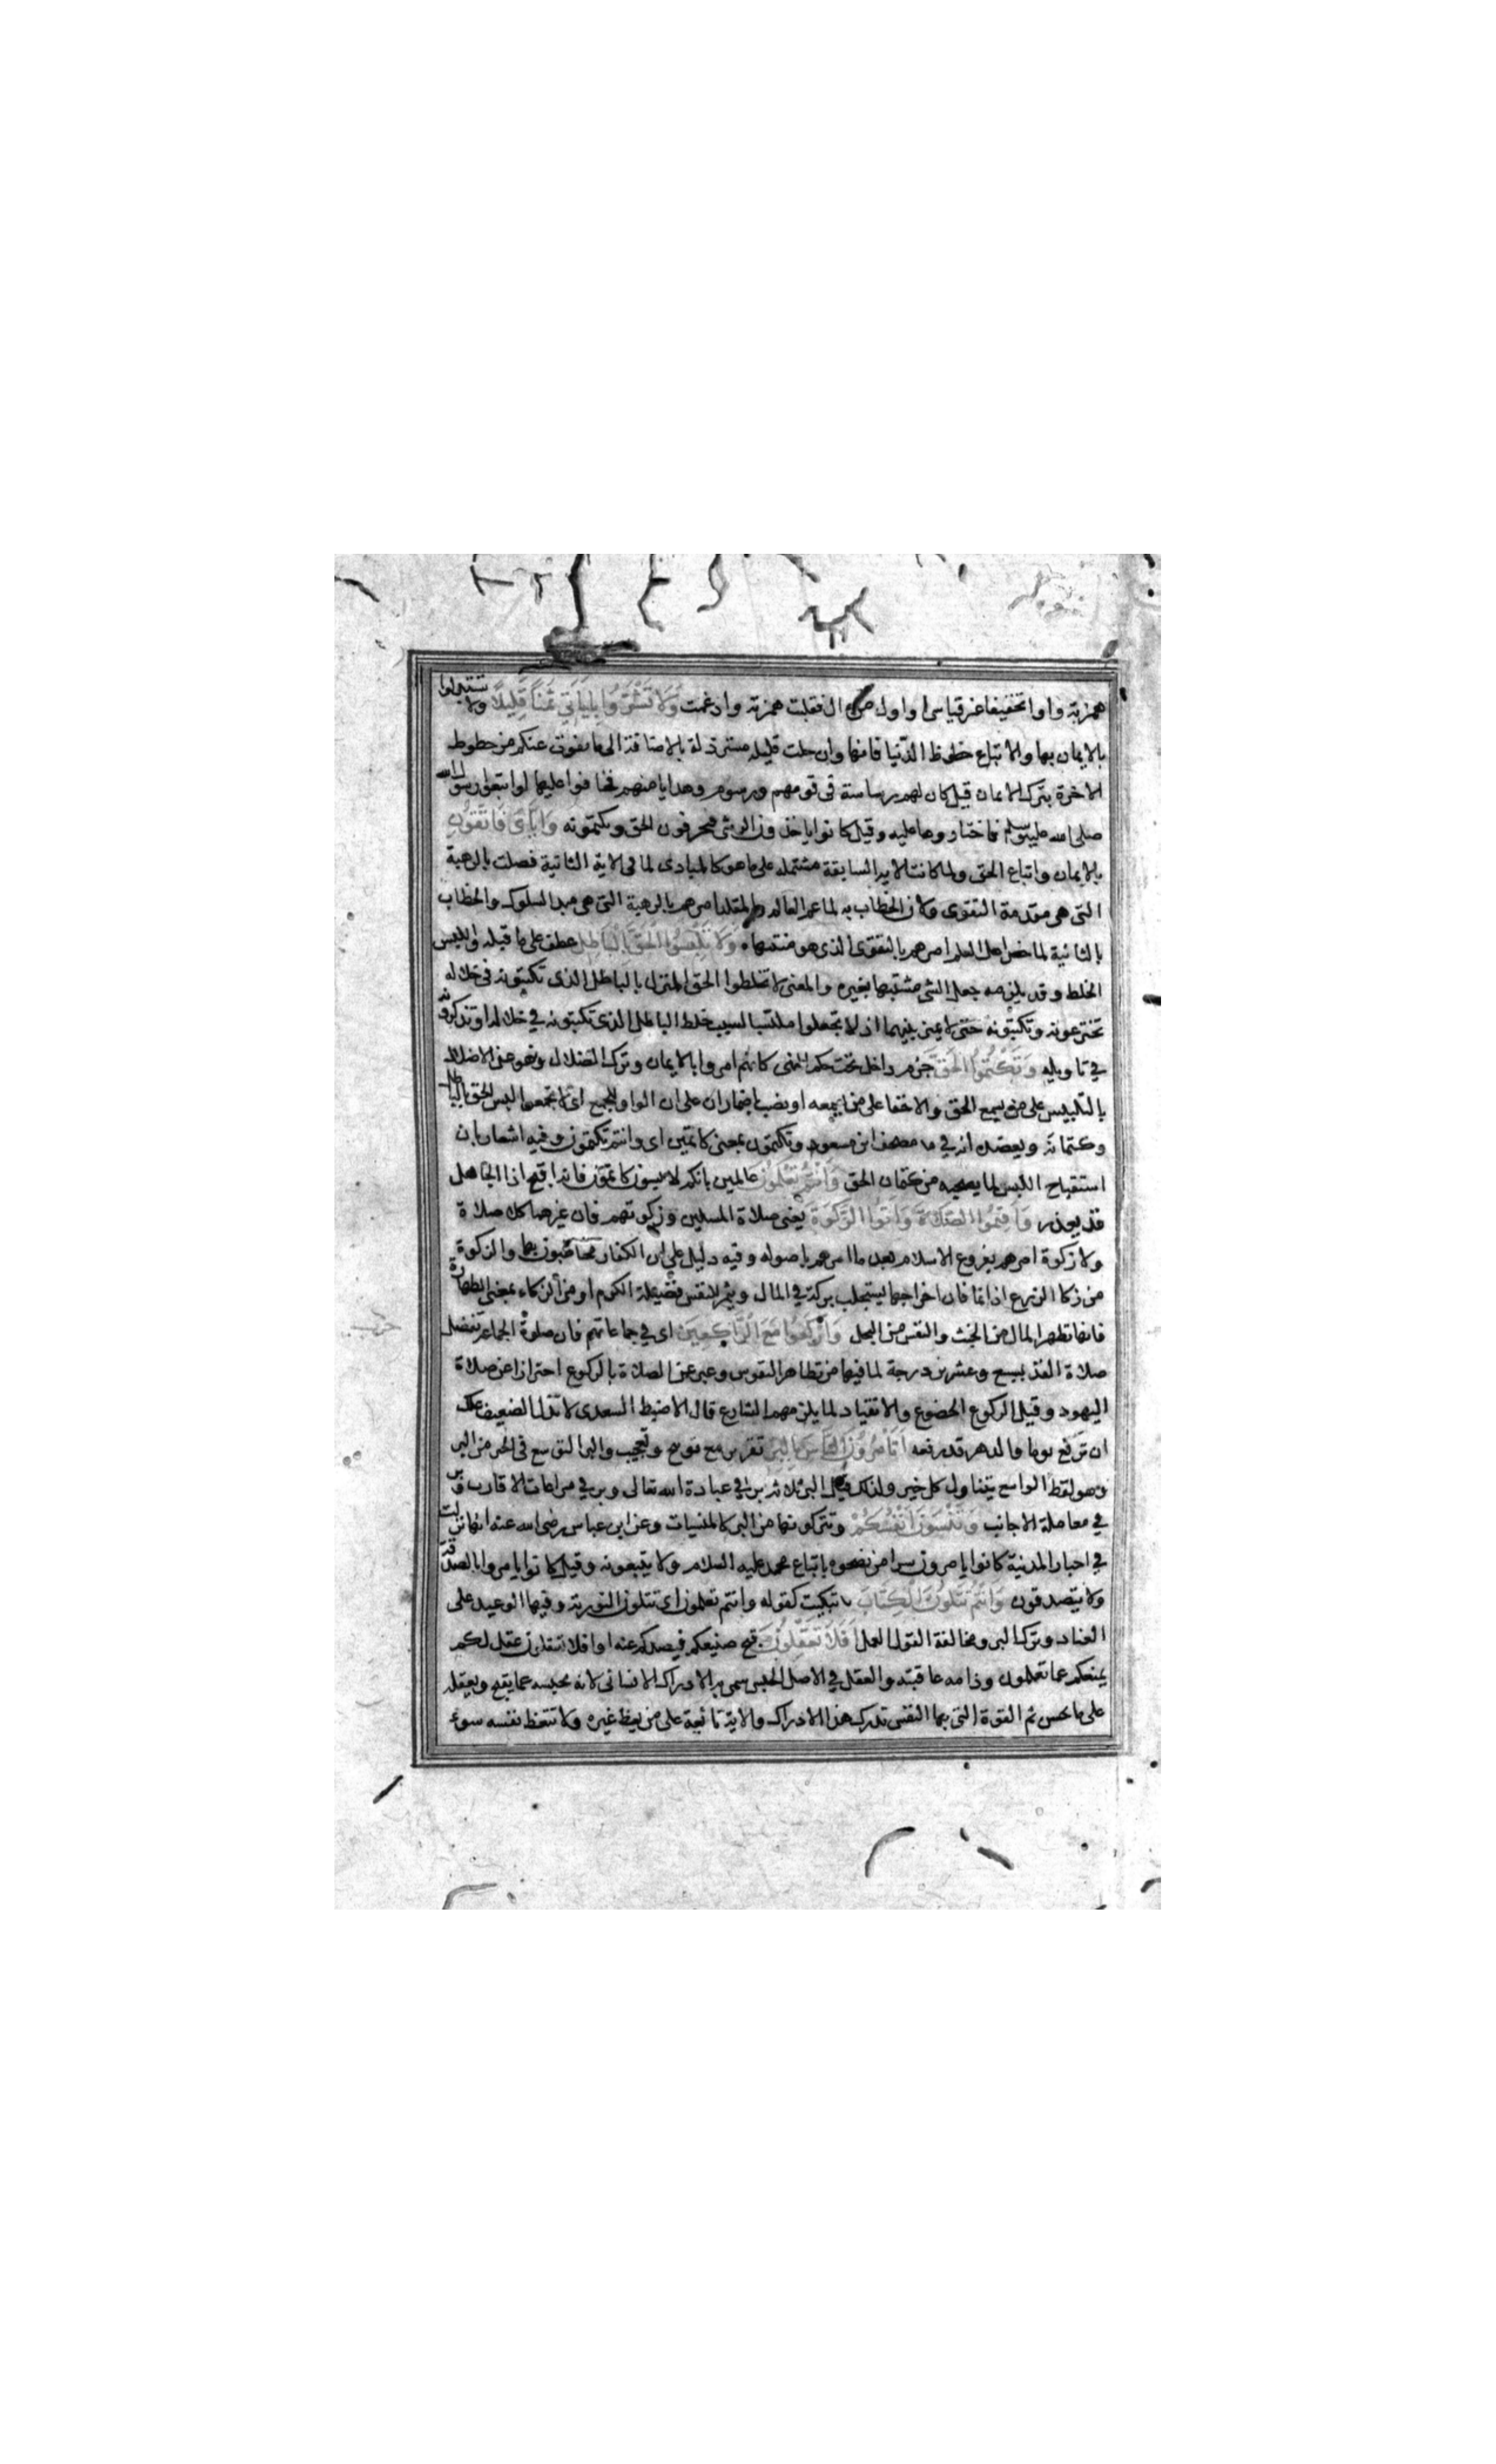 همزته واوا تخفيفا غير قياسى او اول من ال فقلبت همزته وادغمت وَلَا تَشْتَرُوا بِايَاتِي ثَمَنًا قَلِيلًا ولا تستبدلوا
بالايمان بها والاتباع حظوظ الدّنيا فانها وان جلت قليله مسترذلة بالاضافة الى ما يفوت عنكم من حظوظ
الاخرة بترك الايمان قيل كان لهم رياسة فى قومهم ورسوم وهدايا منهم فخافوا عليها لو اتبعوا رسول الله
صلى الله عليه وسلم فاختاروها عليه وقيل كانوا ياخذون الرشى فيحرفون الحق ويكتمونه وَاِيَّايَ فَاتَّقُونِ
بالايمان واتباع الحق ولما كانت الاية السابقة مشتمله على ما هو كالمبادى لما فى الاية الثانية فصلت بالرهبة
التى هى مقدمة التقوى ولان الخطاب به لما عم العالم والمقلد امرهم بالرهبة التى هى مبدا السلوك والخطاب
بالثانية لما خص اهل العلم امرهم بالتقوى الذى هو منتهاه وَلَا تَلْبِسُوا الْحَقَّ بِالْبَاطِلِ عطف على ما قبله واللبس
الخلط وقد يلزمه جعل الشى مشتبها بغيره والمعنى لا تخلطوا الحق المنزل بالباطل الذى تكتبونه فى خلاله
تخترعونه وتكتبونه حتى لا يميز بينهما او لا تجعلوا ملتبسا لسبب خلط الباطل الذى تكتبونه في خلاله او تذكرونه
في تاويله وَتَكْتُمُوا الْحَقَّ جزم داخل تحت حكم النهى كانهم امروا بالايمان وترك الضلال ونهو عن الاضلال
بالتلبيس على من سمع الحق والاخفا على من لم يسمعه او نصب باضماران على ان الواو للجمع اى لا تجمعوا لبس الحق بالباطل
وكتمانه ويعضده انه في مصحف ابن مسعود وتكتمون بمعنى كاتمين اى وانتم تكتمون وفيه اشعار بان
استقباح اللبس لما يصحبه من كتمان الحق وَاَنْتُمْ تَعْلَمُونَ عالمين بانكم لابسون كاتمون فانه اقبح اذا الجاهل
قد يعذر وَاَقِيمُوا الصَّلَاةَ وَاتُوا الزَّكوةَ يعنى صلاة المسلمين وزكوتهم فان غيرهما كلا صلاة
ولا زكوة امرهم بفروع الاسلام بعد ما امرهم باصوله وفيه دليل على ان الكفار مخاطبون بها والزكوة
من زكا الزرع اذا نما فان اخراجها يستجلب بركة في المال ويثمر للنفس فضيلة الكرم او من الزكاء بمعنى الطهارة
فانها تطهر المال من الخبث والنفس من البخل وَارْكَعُوا مَعَ الرَّاكِعِينَ اى في جماعاتهم فان صلوة الجماعة تفضل
صلاة الفذ بسبع وعشرين درجة لما فيها من تظاهر النفوس وعبر عن الصلاة بالركوع احترازا عن صلاة
اليهود وقيل الركوع الخضوع والانقياد لما يلزمهم الشارع قال الاضبط السعدى لا تذل الضعيف علك
ان تركع يوما والدهر قد رفعه اَتَأْمُرُونَ النَّاسَ بِالْبِرِّ تقرير مع توبيخ وتعجيب والبر التوسع فى الخير من البر
وهو لفظ الواسع يتناول كل خير ولذلك قيل البر ثلاثه بر في عبادة الله تعالى وبر في مراعات الاقارب وبر
في معاملة الاجانب وَتَنْسَوْنَ اَنْفُسَكُمْ وتتركونها من البر كالمنسيات وعن ابن عباس رضى الله عنه انها نزلت
في احبار المدينة كانوا يامرون سرا من نصحوه باتباع محمد عليه السلام ولا يتبعونه وقيل كانوا يامروا بالصدقة
ولا يتصدقون وَاَنْتُمْ تَتْلُونَ الْكِتَابَ تبكيت كقوله وانتم تعلمون اى تتلون التورية وفيها الوعيد على
العناد وترك البر ومخالفة القول العمل اَفَلَا تَعْقِلُونَ قبح صنيعكم فيصدكم عنه او افلا تعقلون عقل لكم
يمنعكم عما تعلمون وذامه عاقبته والعقل في الاصل الحبس سمى به الادراك الانسانى لانه يحبسه عما يقبح ويعقله
على ما يحسن ثم القوة التى بها النفس تدرك هذا الادراك والاية ناعية على من يعظ غيره ولا تتعظ نفسه سوء